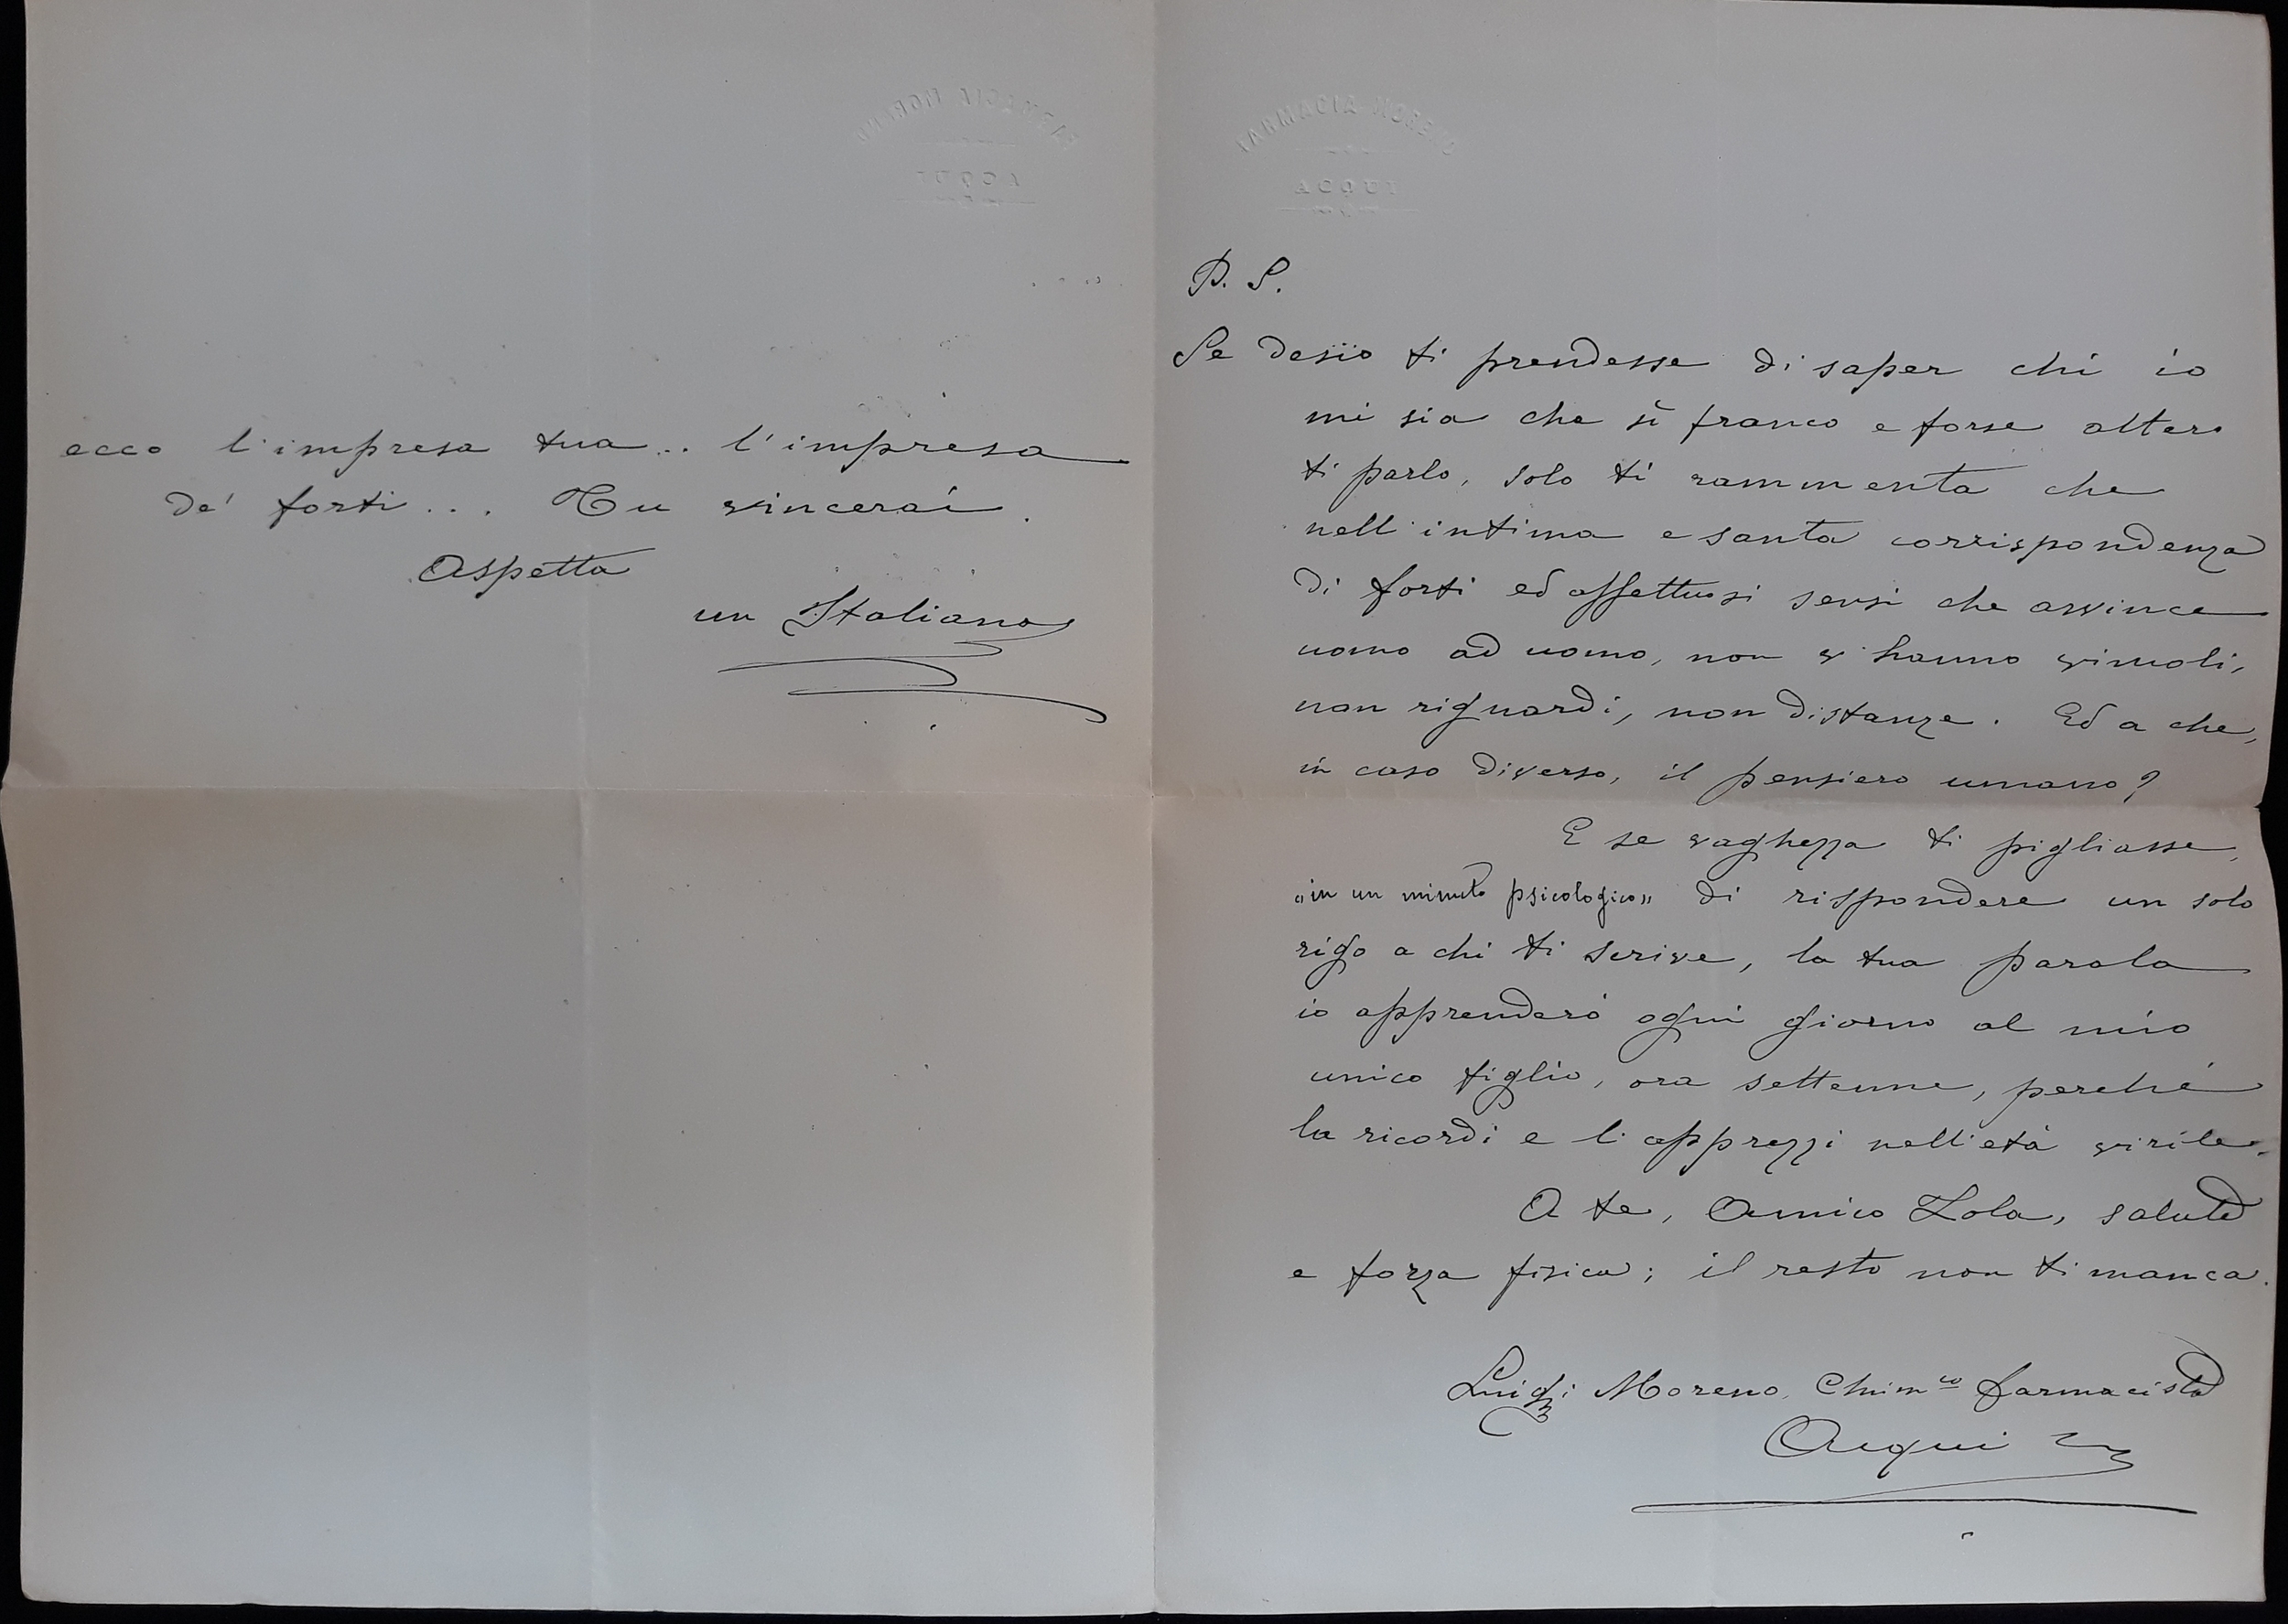 ecco l'impresa tua... l'impresa
de' forti... Tu vincerai.
Aspetta
un Italiano
FARMACIA MORENO
ACQUI
P. S.
Se desïo ti prendesse di saper chi io
mi sia che sì franco e forse altero
ti parlo, solo ti rammenta che
nell'intima e santa corrispondenza
di forti ed affettuosi sensi che avvince
uomo ad uomo, non v'hanno vincoli,
non riguardi, non distanze. Ed a che,
in caso diverso, il pensiero umano?
E se vaghezza ti pigliasse,
"in un minuto psicologico" di rispondere un solo
rigo a chi ti scrive, la tua parola
io apprenderò ogni giorno al mio
unico figlio, ora settenne, perchè
la ricordi e l'apprezzi nell'età virile.
A te, Amico Zola, salute
e forza fisica; il resto non ti manca.
Luigi Moreno, Chim.co farmacista
Acqui